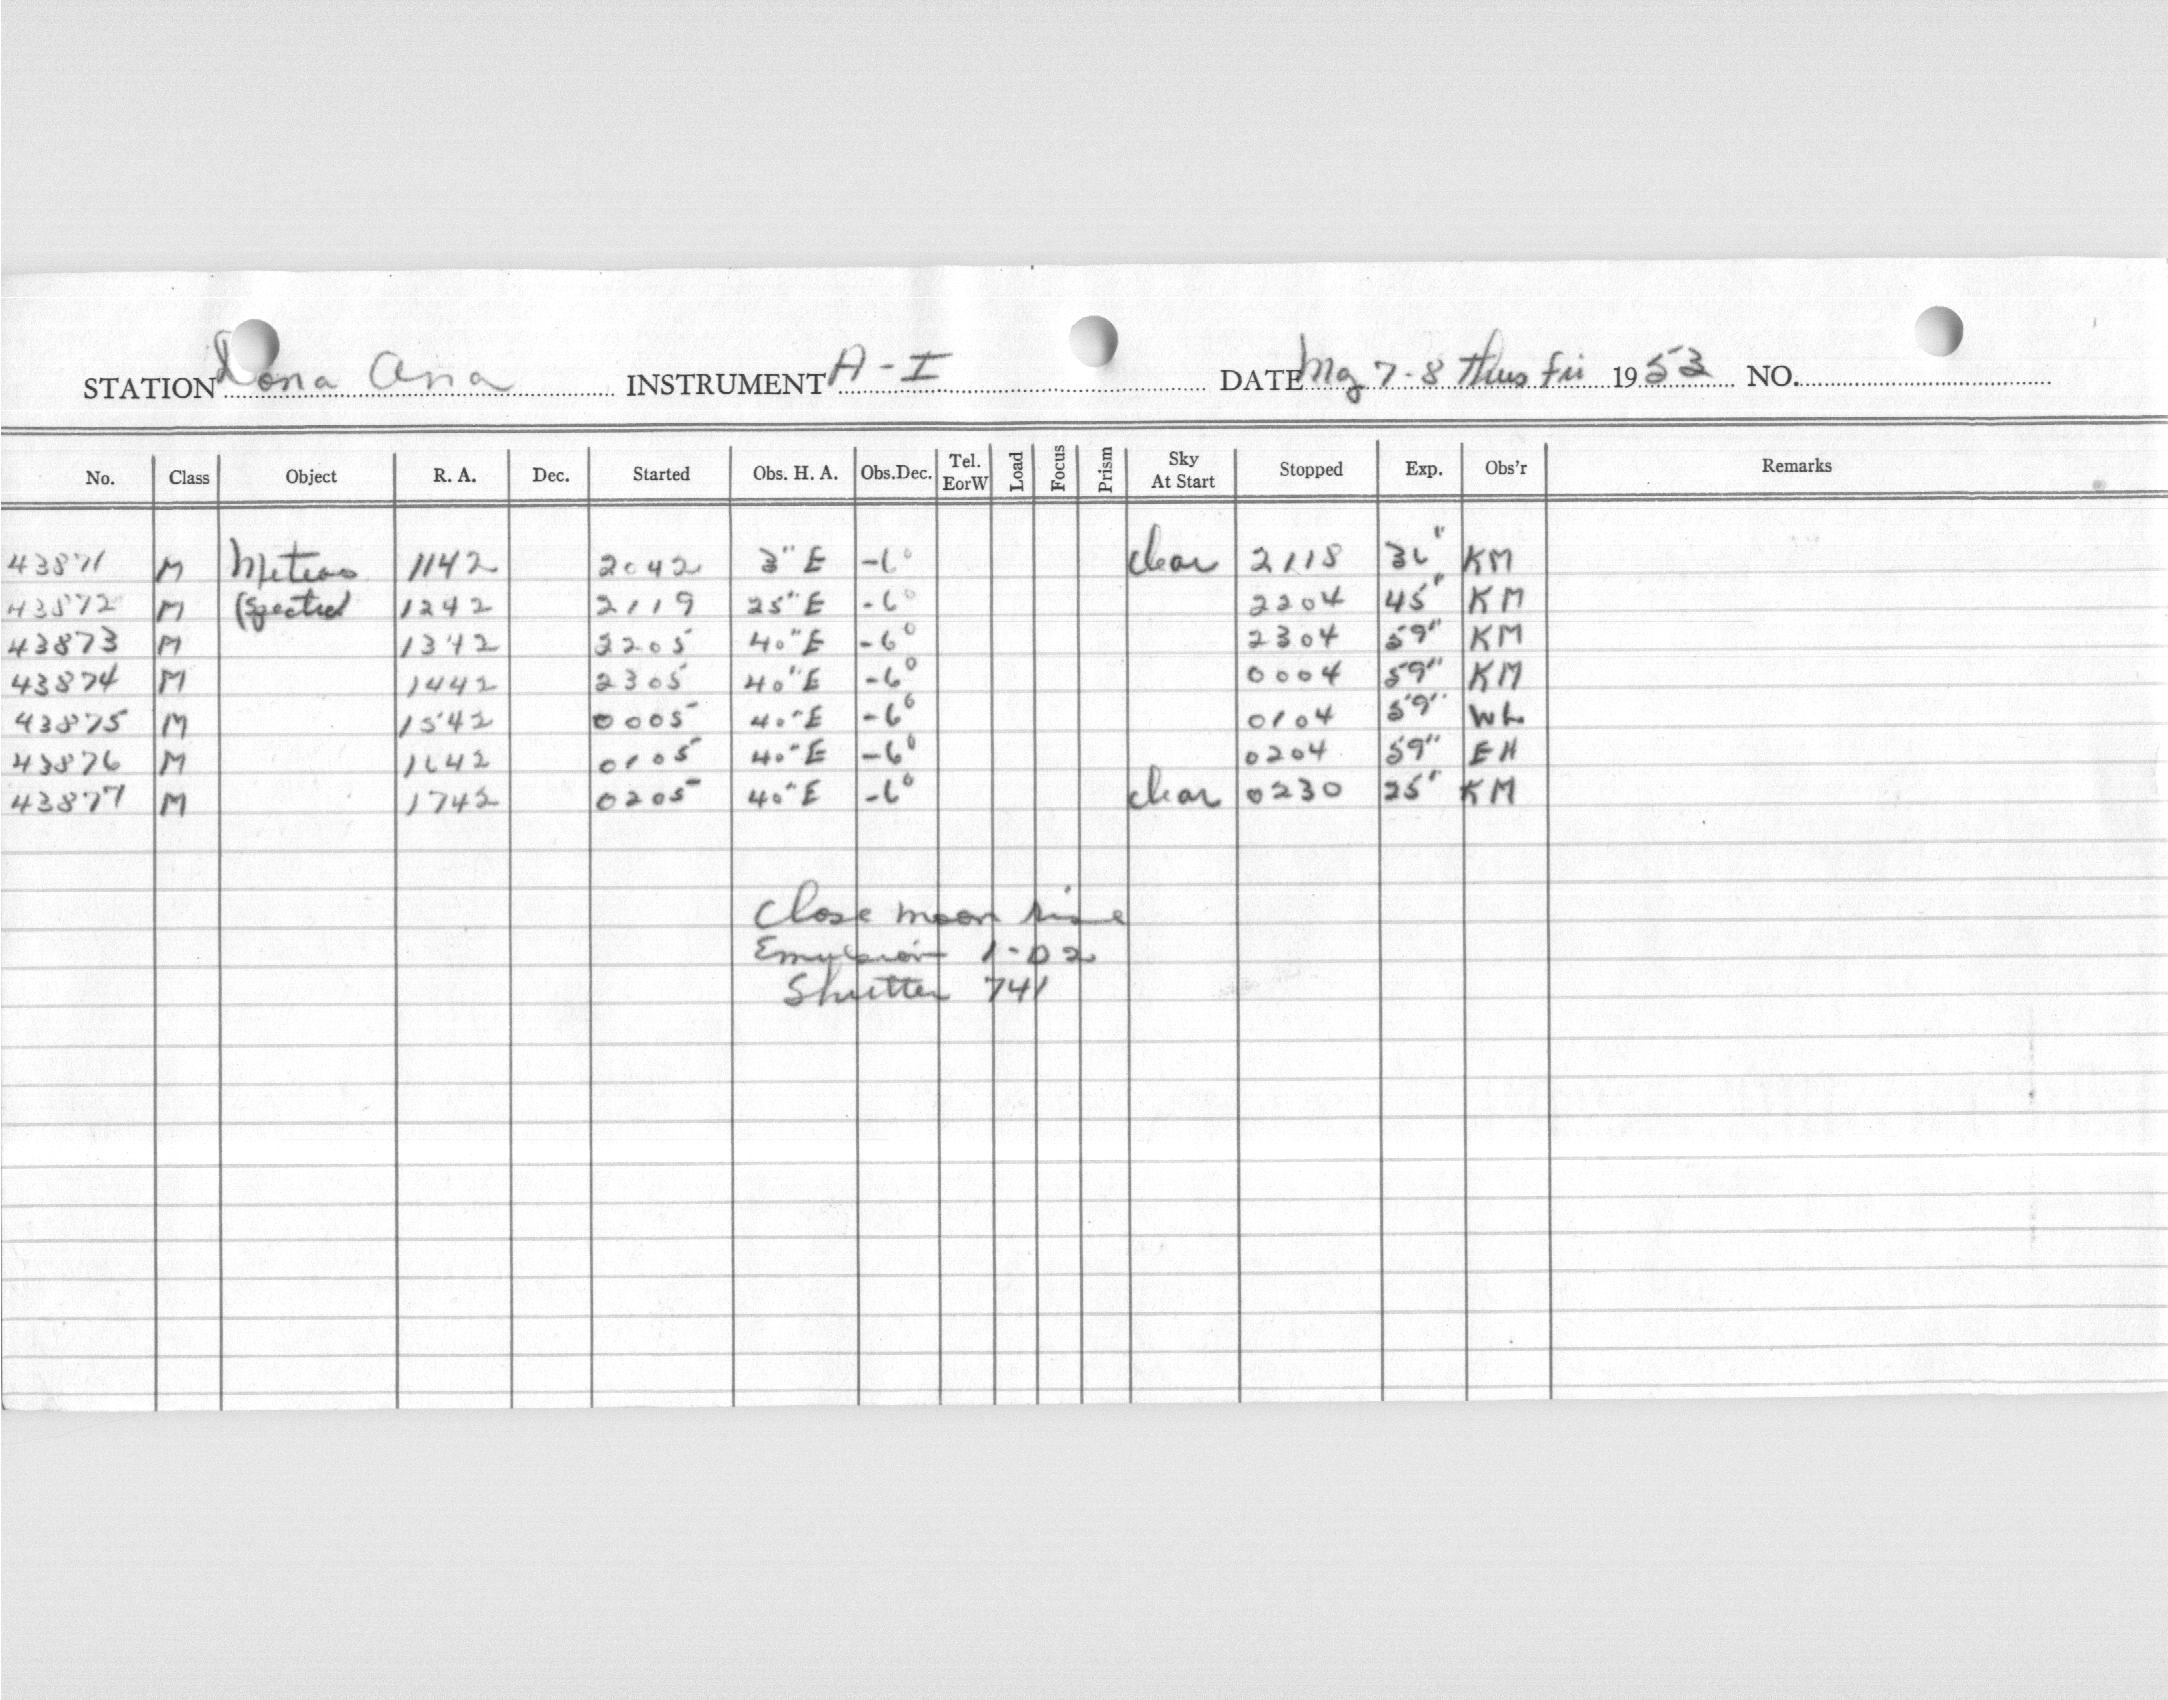 STATION Dona Ana INSTRUMENT A-I DATE May 7-8 Thurs Fri 1953 NO.
No. Class Object R. A. Dec. Started Obs. H. A. Obs.Dec. Tel. EorW Load Focus Prism Sky At Start Stopped Exp. Obs'r Remarks
43871 M Meteors 1142 2042 3" E -6° clear 2118 36" KM
43872 M (Spectra) 1242 2119 25" E -6° 2204 45" KM
43873 M 1342 2205 40" E -6° 2304 59" KM
43874 M 1442 2305 40" E -6° 0004 59" KM
43875 M 1542 0005 40" E -6° 0104 59" WL
43876 M 1642 0105 40" E -6° 0204 59" EH
43877 M 1742 0205 40" E -6° clear 0230 25" KM
Close moon rise
Emulsion 1-D2
Shutter 741